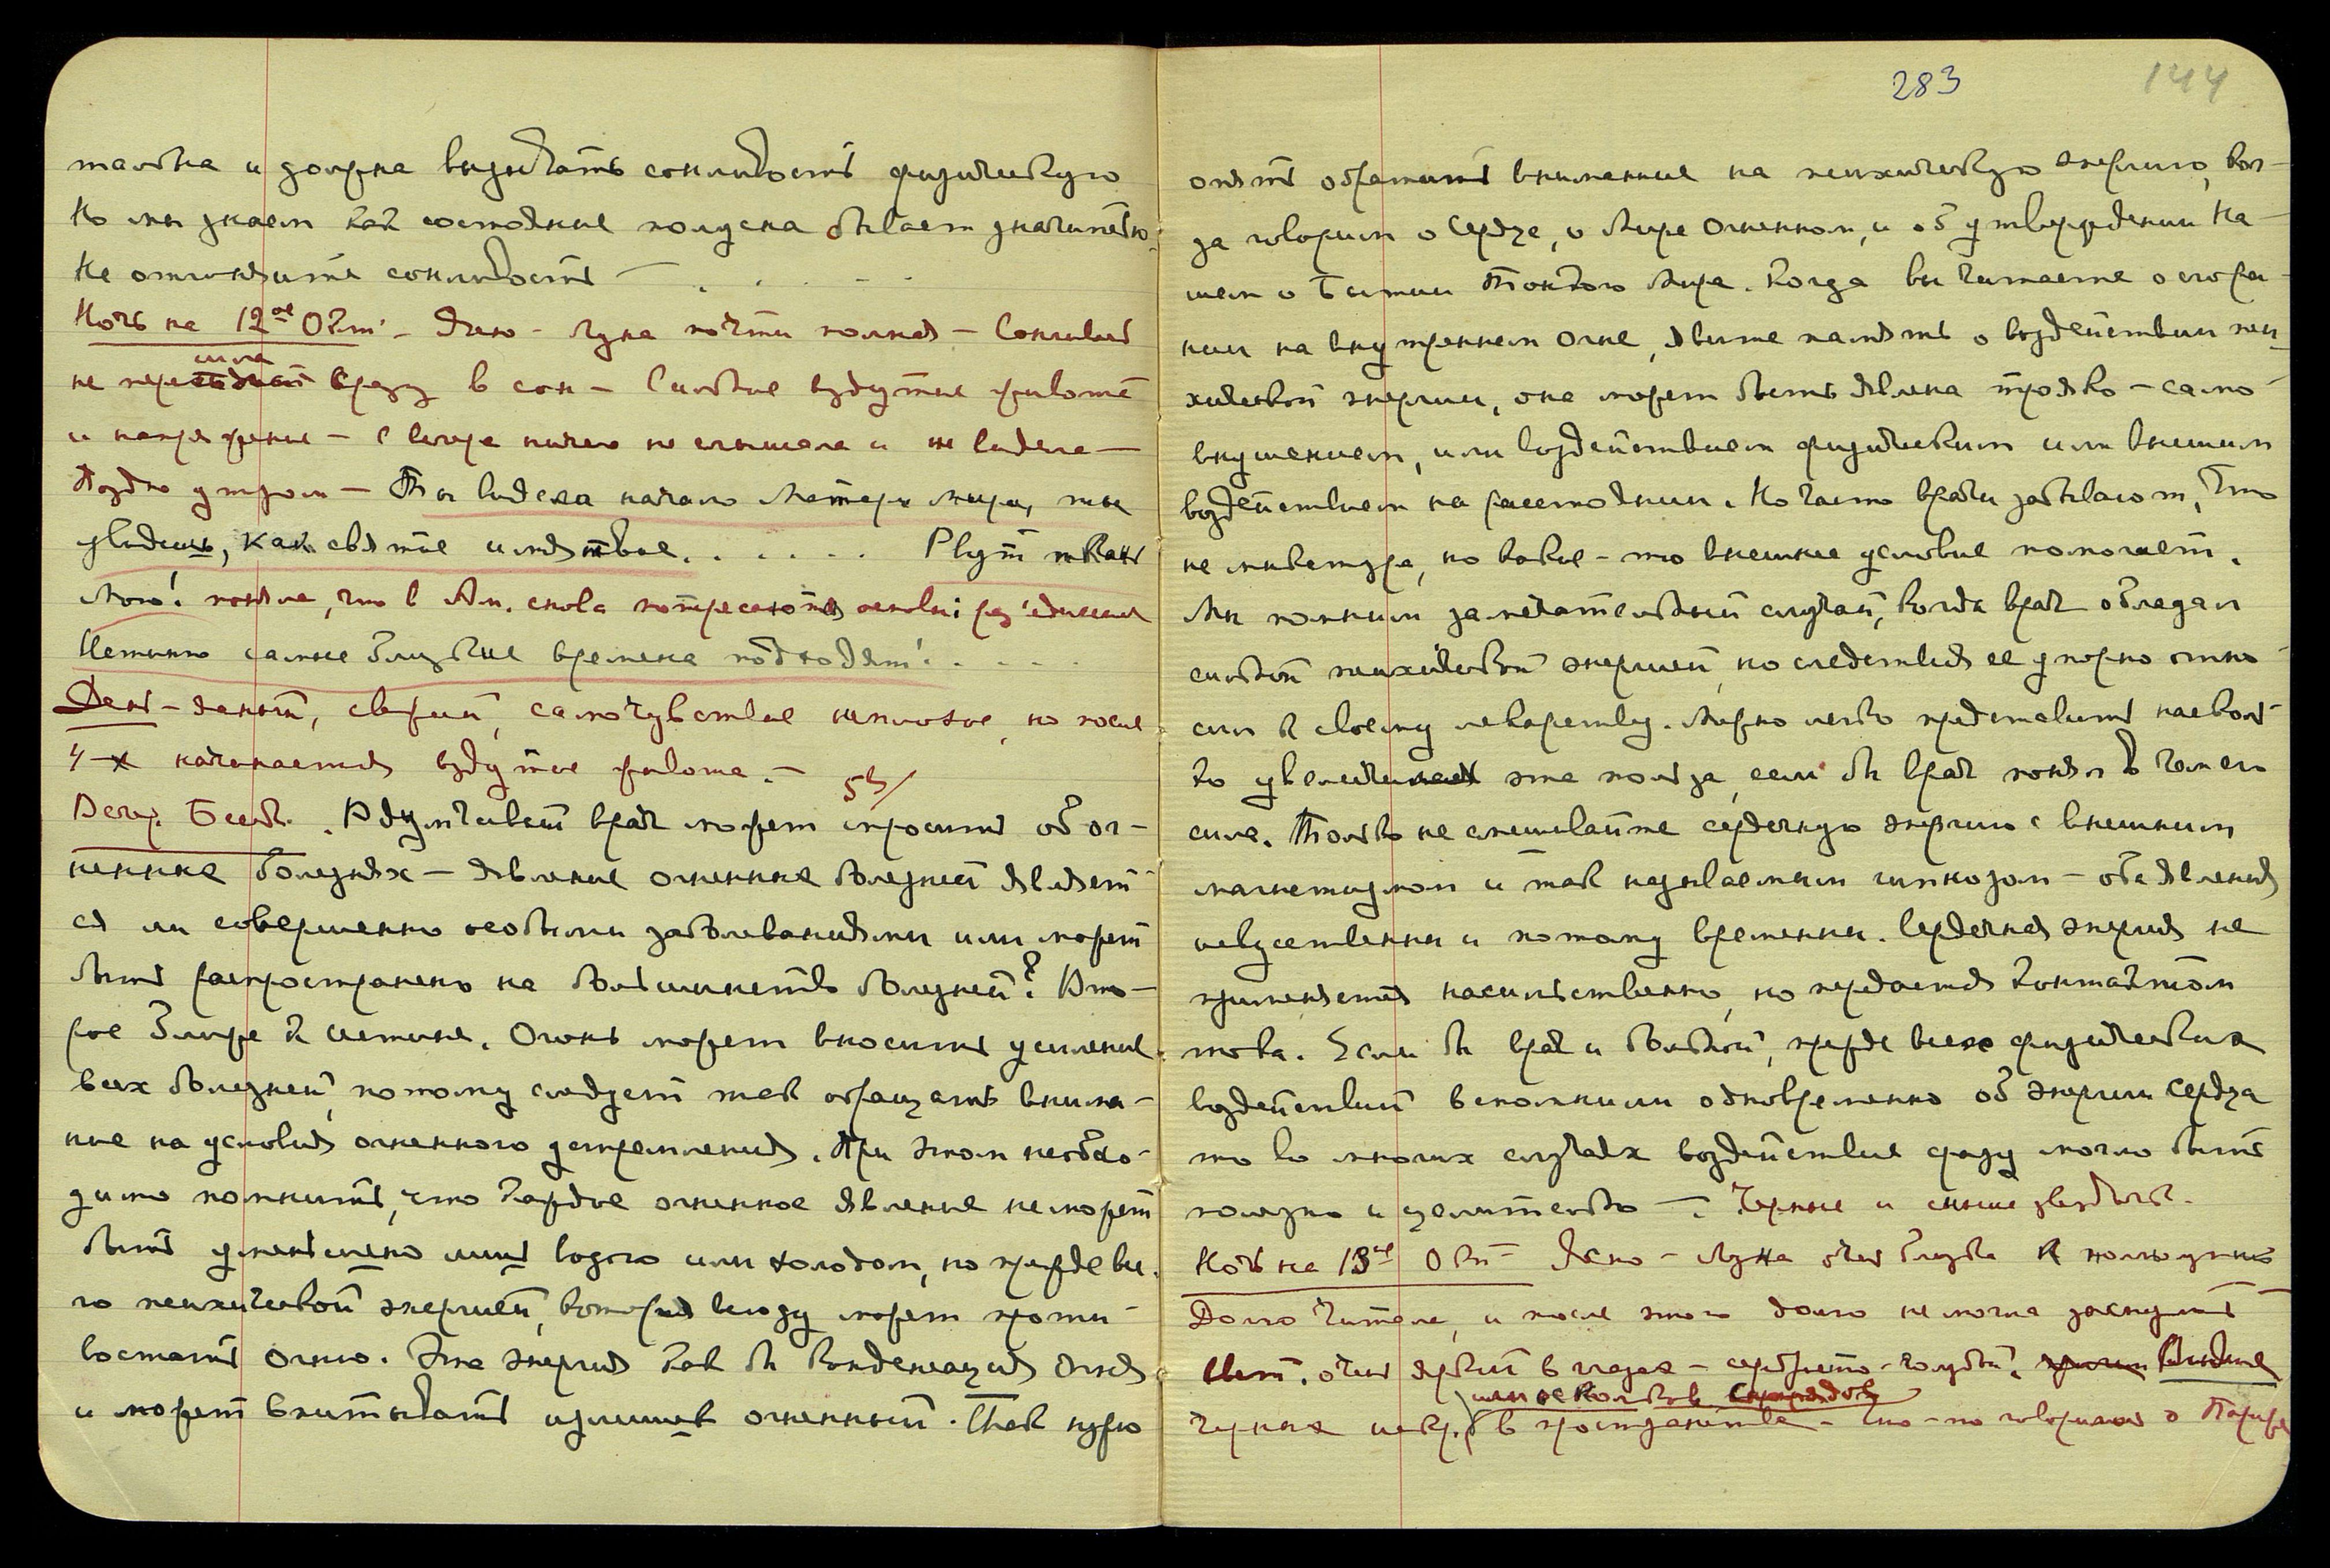 283
144
тальна и должна вызывать сонливость физическую
Но мы знаем как состояние полусна бывает значительно
Не отгоняйте сонливость — . . . .
Ночь на 12ое Окт. — Ясно — Луна почти полная — Сонливость
не перешла сразу в сон — Сильное вздутие живота
и напряжение — С вечера ничего не слышала и не видела —
Поздно утром — Ты видела начало Матери Мира, ты
увидишь, как святые . . . . . . Рвут ткань
Мою! поняла, что в Ам. снова потрясаются основы разъединения
Истинно самые близкие времена подходят! . . . .
День — ясный, свежий, самочувствие неплохое, но после
4-х начинается вздутие живота. —
5ч/
Вечер. Бесед. Вдумчивый врач может спросить об ог-
ненных болезнях — явление огненных болезней являет-
ся ли совершенно особыми заболеваниями или может
быть распространено на большинство болезней? Вто-
рое ближе к истине. Огонь может вносить усиление
всех болезней, потому следует так обращать внима-
ние на условия огненного устремления. При этом необхо-
димо помнить, что каждое огненное явление не может
быть уменьшено лишь водою или холодом, но прежде все-
го психической энергией, которая всюду может проти-
востать огню. Эта энергия как бы конденсация огня
и может впитывать излишек огненный. Так нужно
опять обратить внимание на психическую энергию, ког-
да говорим о Сердце, о Мире Огненном, и об утверждении На-
шем о Бытии Тонкого Мира. Когда вы читаете о сгора-
нии на внутреннем огне, явите память о воздействии пси-
хической энергии, она может быть явлена трояко — само-
внушением, или воздействием физическим или высшим
воздействием на расстоянии. Но часто врачи забывают, что
не микстура, но какое-то внешнее условие помогает.
Мы помним замечательный случай, когда врач обладал
сильной психической энергией, но следствия ее упорно отно-
сил к своему лекарству. Можно легко представить насколь-
ко увеличилась эта польза, если бы врач понял в чем его
сила. Только не смешивайте сердечную энергию с внешним
магнетизмом и так называемым гипнозом — оба явления
искусственны и потому временны. Сердечная энергия не
применяется насильственно, но передается контактом
тока. Если бы врач и больной, прежде всех физических
воздействий вспомнили одновременно об энергии Сердца
то во многих случаях воздействие сразу могло быть
полезно и целительно —. Черные и синие звездочк.
Ночь на 13ое Окт — Ясно — Луна очень близка к полнолунию
Долго читала, и после этого долго не могла заснуть
очень яркий в глазах — серебристо-голубой. Видение
или осколков снарядов
черных искр. в пространстве — Что-то говорилось о Париже